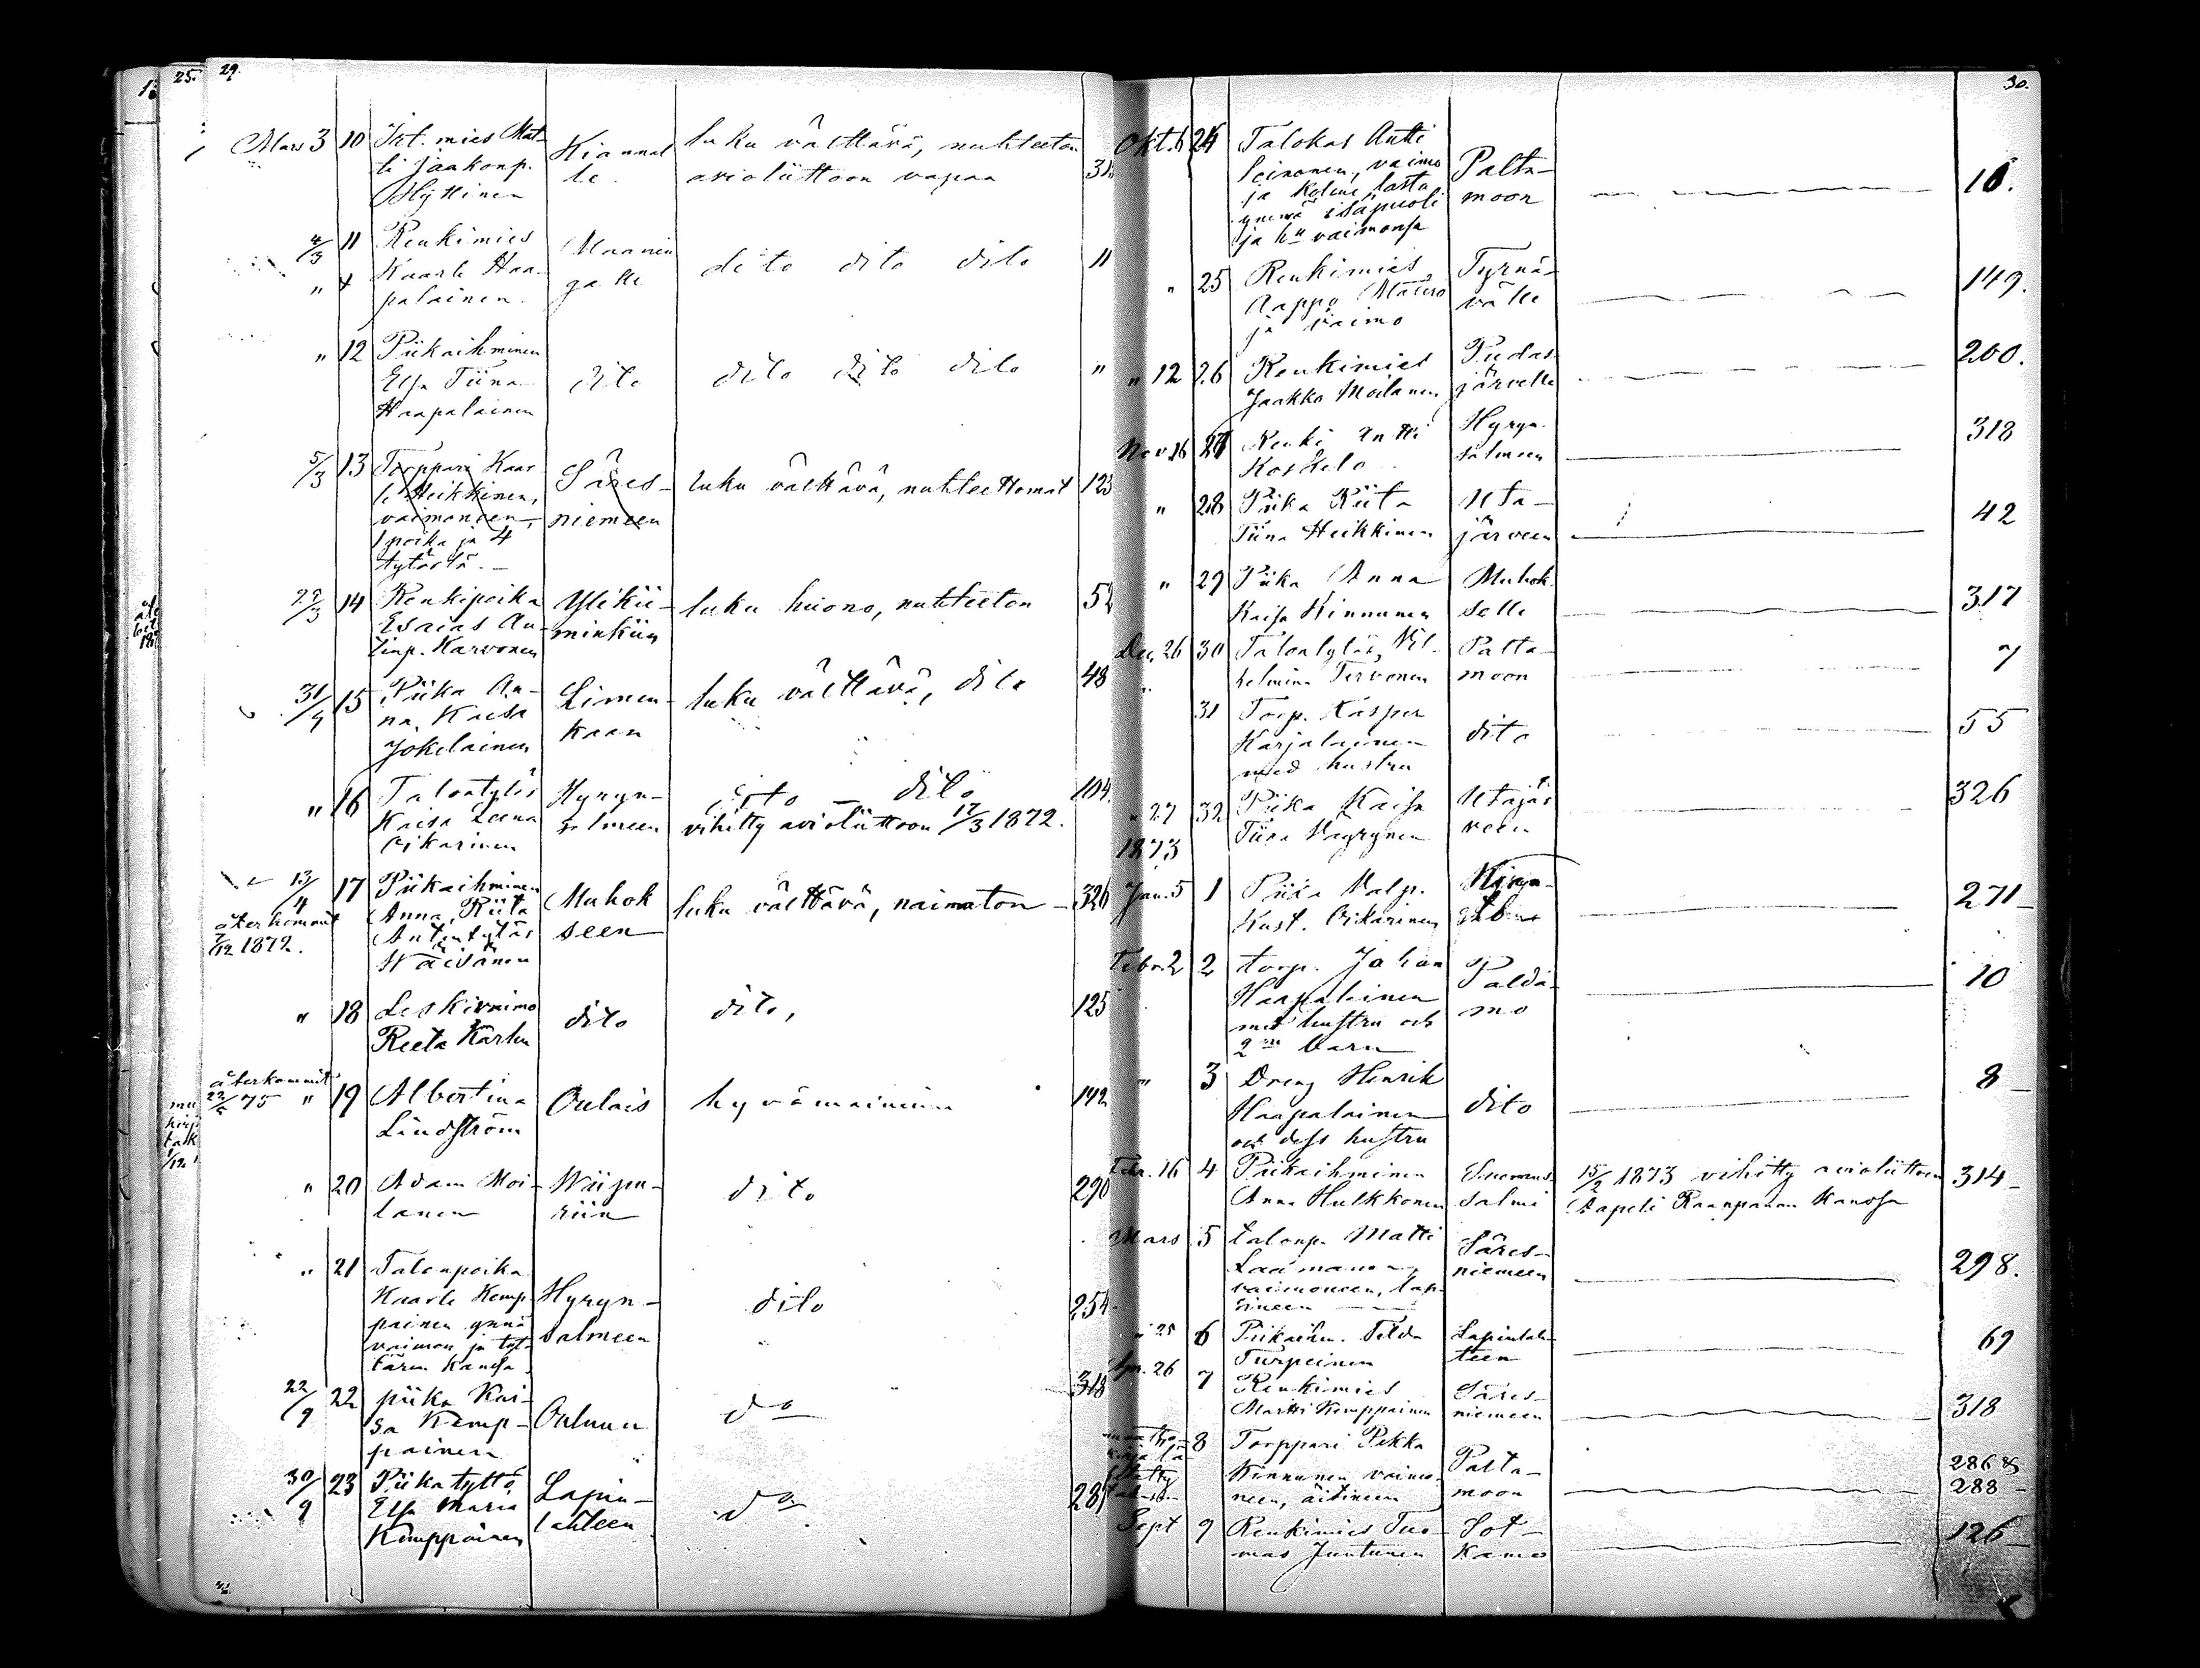 29.
Mars 3 10 Itt. mies Mat-
ti Jaakonp.
Hyttinen
Hiannal
le.
luku välttävä, nuhteeton
avioliittoon vapaa
31
4/3 11 Renkimies
Kaarle Haa-
palainen.
Maanin
galle
dito dito dito
11
" 12 Piikaihminen
Elsa Tiina
Haapalainen
dito
dito dito dito
"
5/3 13 Torppari Kaar
le Heikkinen,
vaimoneen,
1 poika ja 4
tytärtä. —
Säres-
niemeen
luku välttävä, nuhteettomat
123
22/3 14 Renkipoika
Esaias An-
tinp. Karvonen
Ylikii-
minkiin
luku huono, nuhteeton
52
31/3 15 Piika An-
na Kaisa
Jokelainen
Limin-
kaan
luku välttävä, dito
48
" 16 Talontytär
Kaisa Leena
Oikarinen
Hyryn-
salmeen
dito — dito
vihitty avioliittoon 17/3 1872.
104.
13/4 17 Piikaihminen
Anna Riita
Antintytär
Wäisänen
återkommit
7/12 1872.
Muhok
seen
luku välttävä, naimaton —
326
" 18 Leskivaimo
Reeta Karhu
dito
dito,
125
återkommit
75 " 19 Albertina
Lindström
Oulais
hyvämaininen
142
" 20 Adam Moi-
lanen
Wiipu-
riin
dito
290
" 21 Talonpoika
Kaarle Kemp
painen ynnä
vaimon ja tyt-
tären kanssa
Hyryn-
salmeen
dito
254.
22/9 22 piika Kai-
sa Kemp-
painen
Ouluun
do
318
30/9 23 Piikatyttö
Elsa Maria
Kemppainen
Lapin-
lahteen
do
287
30.
Okt. 6 24 Talokas Antti
Leinonen, vaimo
ja kolme lasta
ynnä isäpuoli
ja hn vaimonsa
Palta-
moon
16.
" 25 Renkimies
Aappo Matero
ja vaimo
Tyrnä-
välle
149.
" 12 26 Renkimies
Jaakko Moilanen
Pudas-
järvelle
200.
Nov 16 27 Renki Antti
Koskelo
Hyryn-
salmeen
318
" 28 Piika Riita
Tiina Heikkinen
Uta-
järveen
42
" 29 Piika Anna
Kaisa Kinnunen
Muhok-
selle
317
Dec. 26 30 Talontytär, Vil-
helmina Tervonen
Palta-
moon
7
31 Torp. Kasper
Karjalainen
med hustru
dito
55
" 27 32 Piika Kaisa
Tiina Väyrynen
Utajär
veen
326
1873
Jan. 5 1 Piika Valp.
Kust. Oikarinen
271
Febr. 2 2 torp. Johan
Haapalainen
med hustru och
2ne barn
Palda-
mo
10
" 3 Dreng Henrik
Haapalainen
och dess hustru
dito
8
Febr. 16 4 Piikaihminen
Anna Hulkkonen
Suomus-
salmi
15/2 1873 vihitty avioliittoon
Aapeli Raappanan kanssa
314
Mars 5 talonp. Matti
Laamanen
vaimoneen, lap-
sineen
Säres-
niemeen
298.
" 25 6 Piikaihm. Tilda
Turpeinen
Lapinlah-
teen
69
Apr. 26 7 Renkimies
Martti Kemppainen
Säres-
niemeen
318
8 Torppari Pekka
Kinnunen vaimo-
neen, äitineen
Palta-
moon
286 &
288
Sept 9 Renkimies Tuo-
mas Juntunen
Sot-
kamo
126